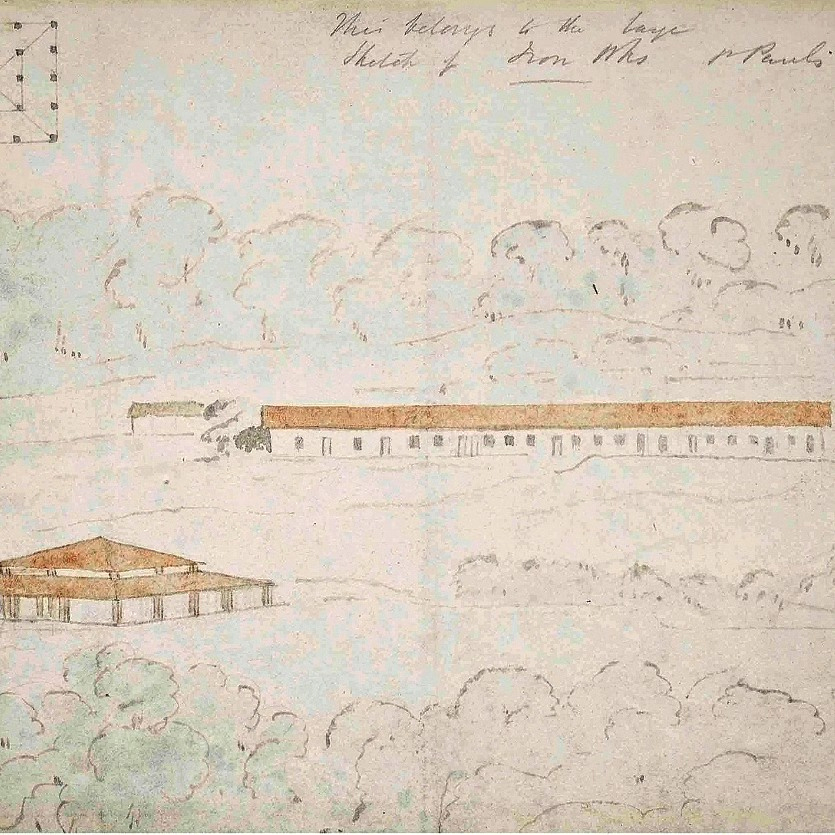 This belongs to the large
Sketch of Iron Wks St Pauls